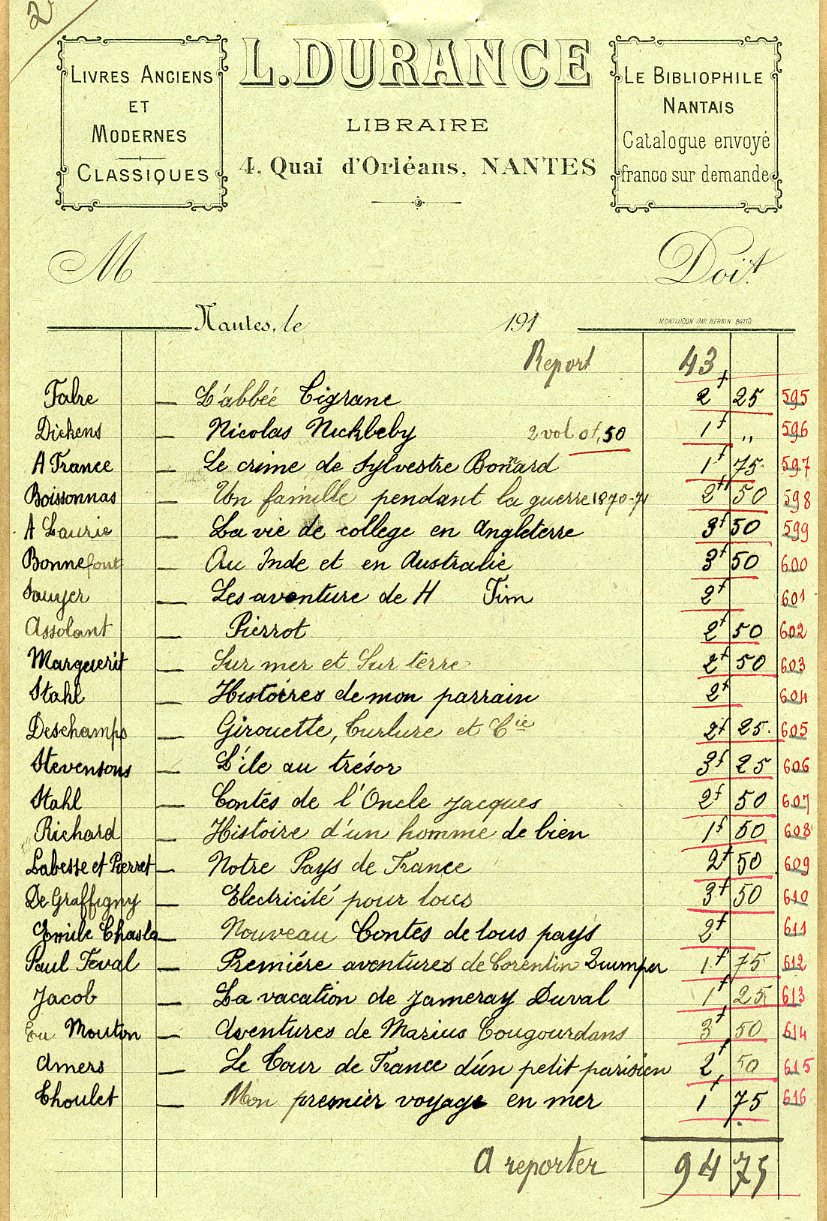 2
LIVRES ANCIENS
ET
MODERNES
CLASSIQUES
L. DURANCE
LIBRAIRE
4, Quai d'Orléans, NANTES
LE BIBLIOPHILE
NANTAIS
Catalogue envoyé
franco sur demande
M Doit
Nantes, le 191
Report 43
Fabre — L'abbée Tigrane 2f 25 595
Dickens — Nicolas Nickbeby 2 vol 0f,50 1f „ 596
A France — Le crime de Sylvestre Bonnard 1f 75 597
Boissonnas — Un famille pendant la guerre 1870-71 2f 50 598
A Laurie — La vie de college en Angleterre 3f 50 599
Bonnefont — Au Inde et en Australie 3f 50 600
Sawyer — Les aventure de H Tim 2f 601
Assolant — Pierrot 2f 50 602
Marguerit — Sur mer et Sur terre 2f 50 603
Stahl — Histoires de mon parrain 2f 604
Deschamps — Girouette, Turlure et Cie 2f 25 605
Stevensons — L'île au trésor 3f 25 606
Stahl — Contes de l'Oncle Jacques 2f 50 607
Richard — Histoire d'un homme de bien 1f 50 608
Labesse et Pierret — Notre Pays de France 2f 50 609
De Graffigny — Electricité pour tous 3f 50 610
Emile Chasla — Nouveau Contes de tous pays 2f 611
Paul Feval — Premiére aventures de Corentin Quimper 1f 75 612
Jacob — La vacation de Jameray Duval 1f 25 613
Eu Mouton — Aventures de Marius Cougourdans 3f 50 614
Amers — Le Tour de France d'un petit parisien 2f 50 615
Choulet — Mon premier voyage en mer 1f 75 616
A reporter 94 75